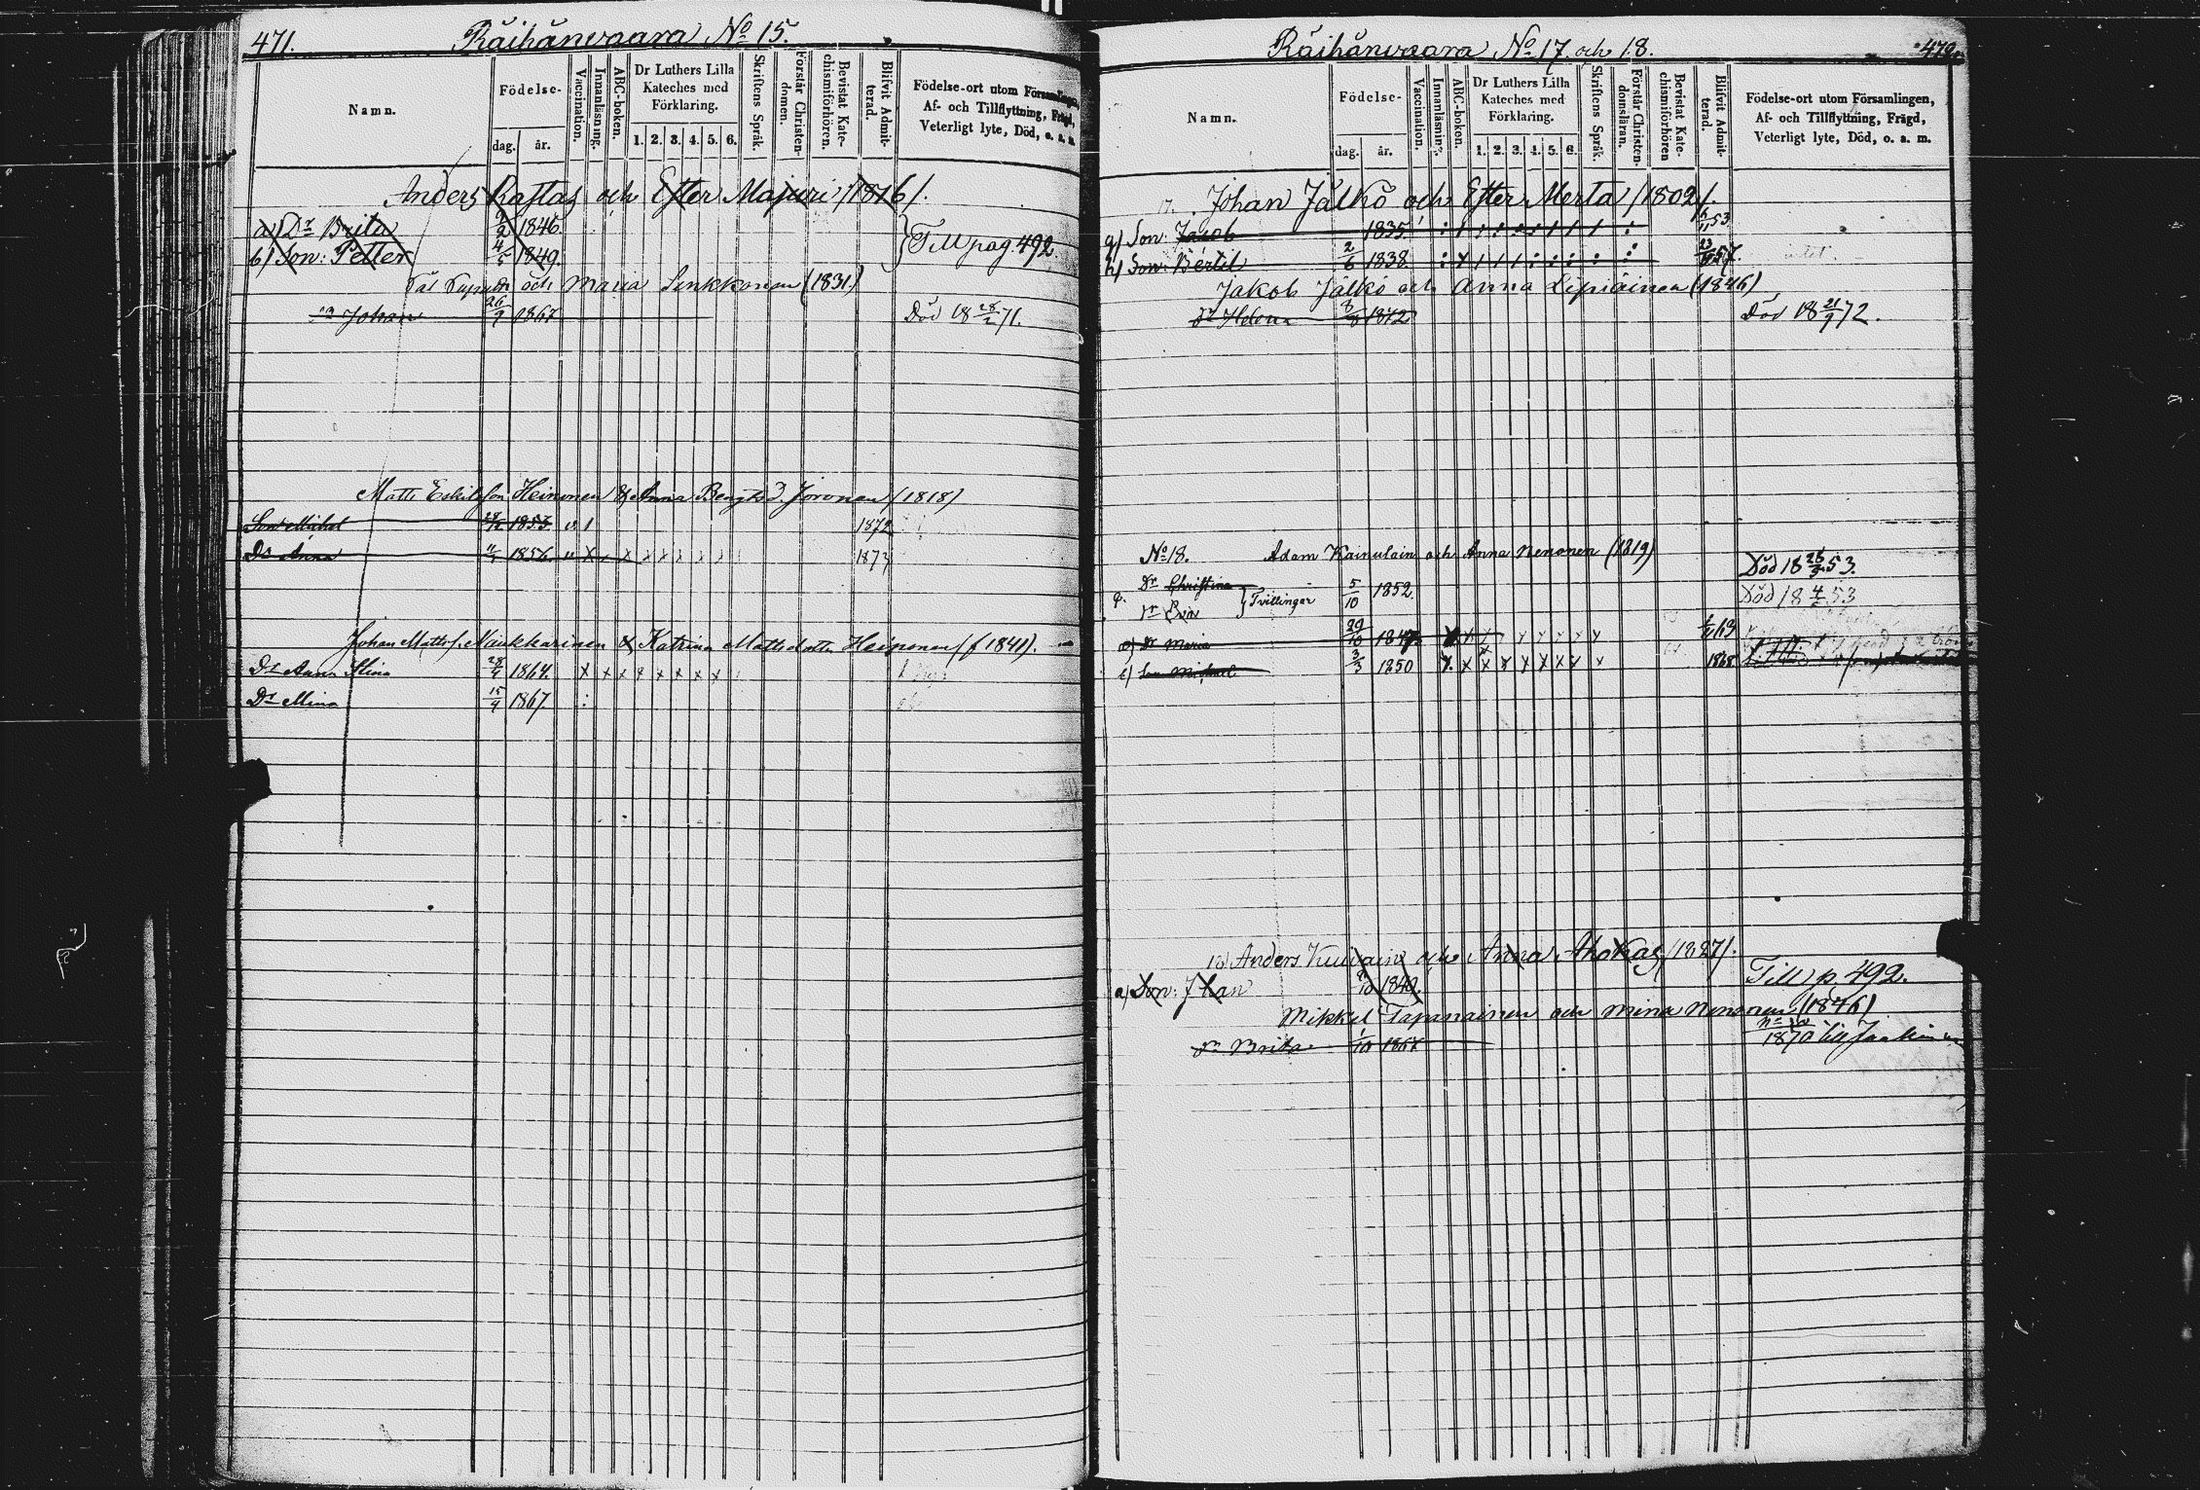 471.
Räihänvaara No 15.
Namn.
Födelse-
dag.
år.
Vaccination.
Innanläsning.
ABC-boken.
Dr Luthers Lilla
Kateches med
Förklaring.
1. 2. 3. 4. 5. 6.
Skriftens Språk.
Förstår Christen-
domen.
Bevistat Kate-
chismiförhören.
Blifvit Admit-
terad.
Födelse-ort utom Församlingen,
Af- och Tillflyttning, Frägd,
Veterligt lyte, Död, o. s. m.
Anders Rastas och Ester Majuri /1816/.
a) Dr Brita 1846.
b) Son: Petter 4/5 1849.
Till pag. 492
och Maria Sinkkonen (1831)
Johan 26/9 1867 Död 18 28/2 71.
Matts Eskilsson Heinonen & Anna Bengtsd. Joronen (1818)
Son Michel 1853. 1872
Dr Anna 1856. 1873
Johan Mattss. Naukkarinen & Katrina Mattsdotter Heinonen (f 1841).
Dr Anna Stina 28/4 1864.
Dr Mina 15/9 1867.
Räihänvaara No 17. och 18.
472.
Namn.
Födelse-
dag.
år.
Vaccination.
Innanläsning.
ABC-boken.
Dr Luthers Lilla
Kateches med
Förklaring.
1. 2. 3. 4. 5. 6.
Skriftens Språk.
Förstår Christen-
domsläran.
Bevistat Kate-
chismiförhören
Blifvit Admit-
terad.
Födelse-ort utom Församlingen,
Af- och Tillflyttning, Frägd,
Veterligt lyte, Död, o. s. m.
17. Johan Jälkö och Ester Merta /1802/.
g) Son: Jacob 1835. 53
h) Son: Bertil 2/6 1838. 57.
Jakob Jälkö och Anna Lipiäinen (1846)
Dr Helena 1872 Död 18 21/9 72.
No 18. Adam Kainulain och Anna Nenonen (1819)
Dr Christina Död 18 53.
Tvillingar 5/10 1852.
Dr Eva Död 18 53
Dr Maria 29/10 1847. 69
Son Michael 3/3 1850 1868
18) Anders Kuivain och Anna Ahokas /1827/.
a) Son: Johan 1849. Till p. 492.
Mikkel Tapanainen och Mina Nenonen (1846)
Dr Brita 1/10 1868 1870 till Jaakim